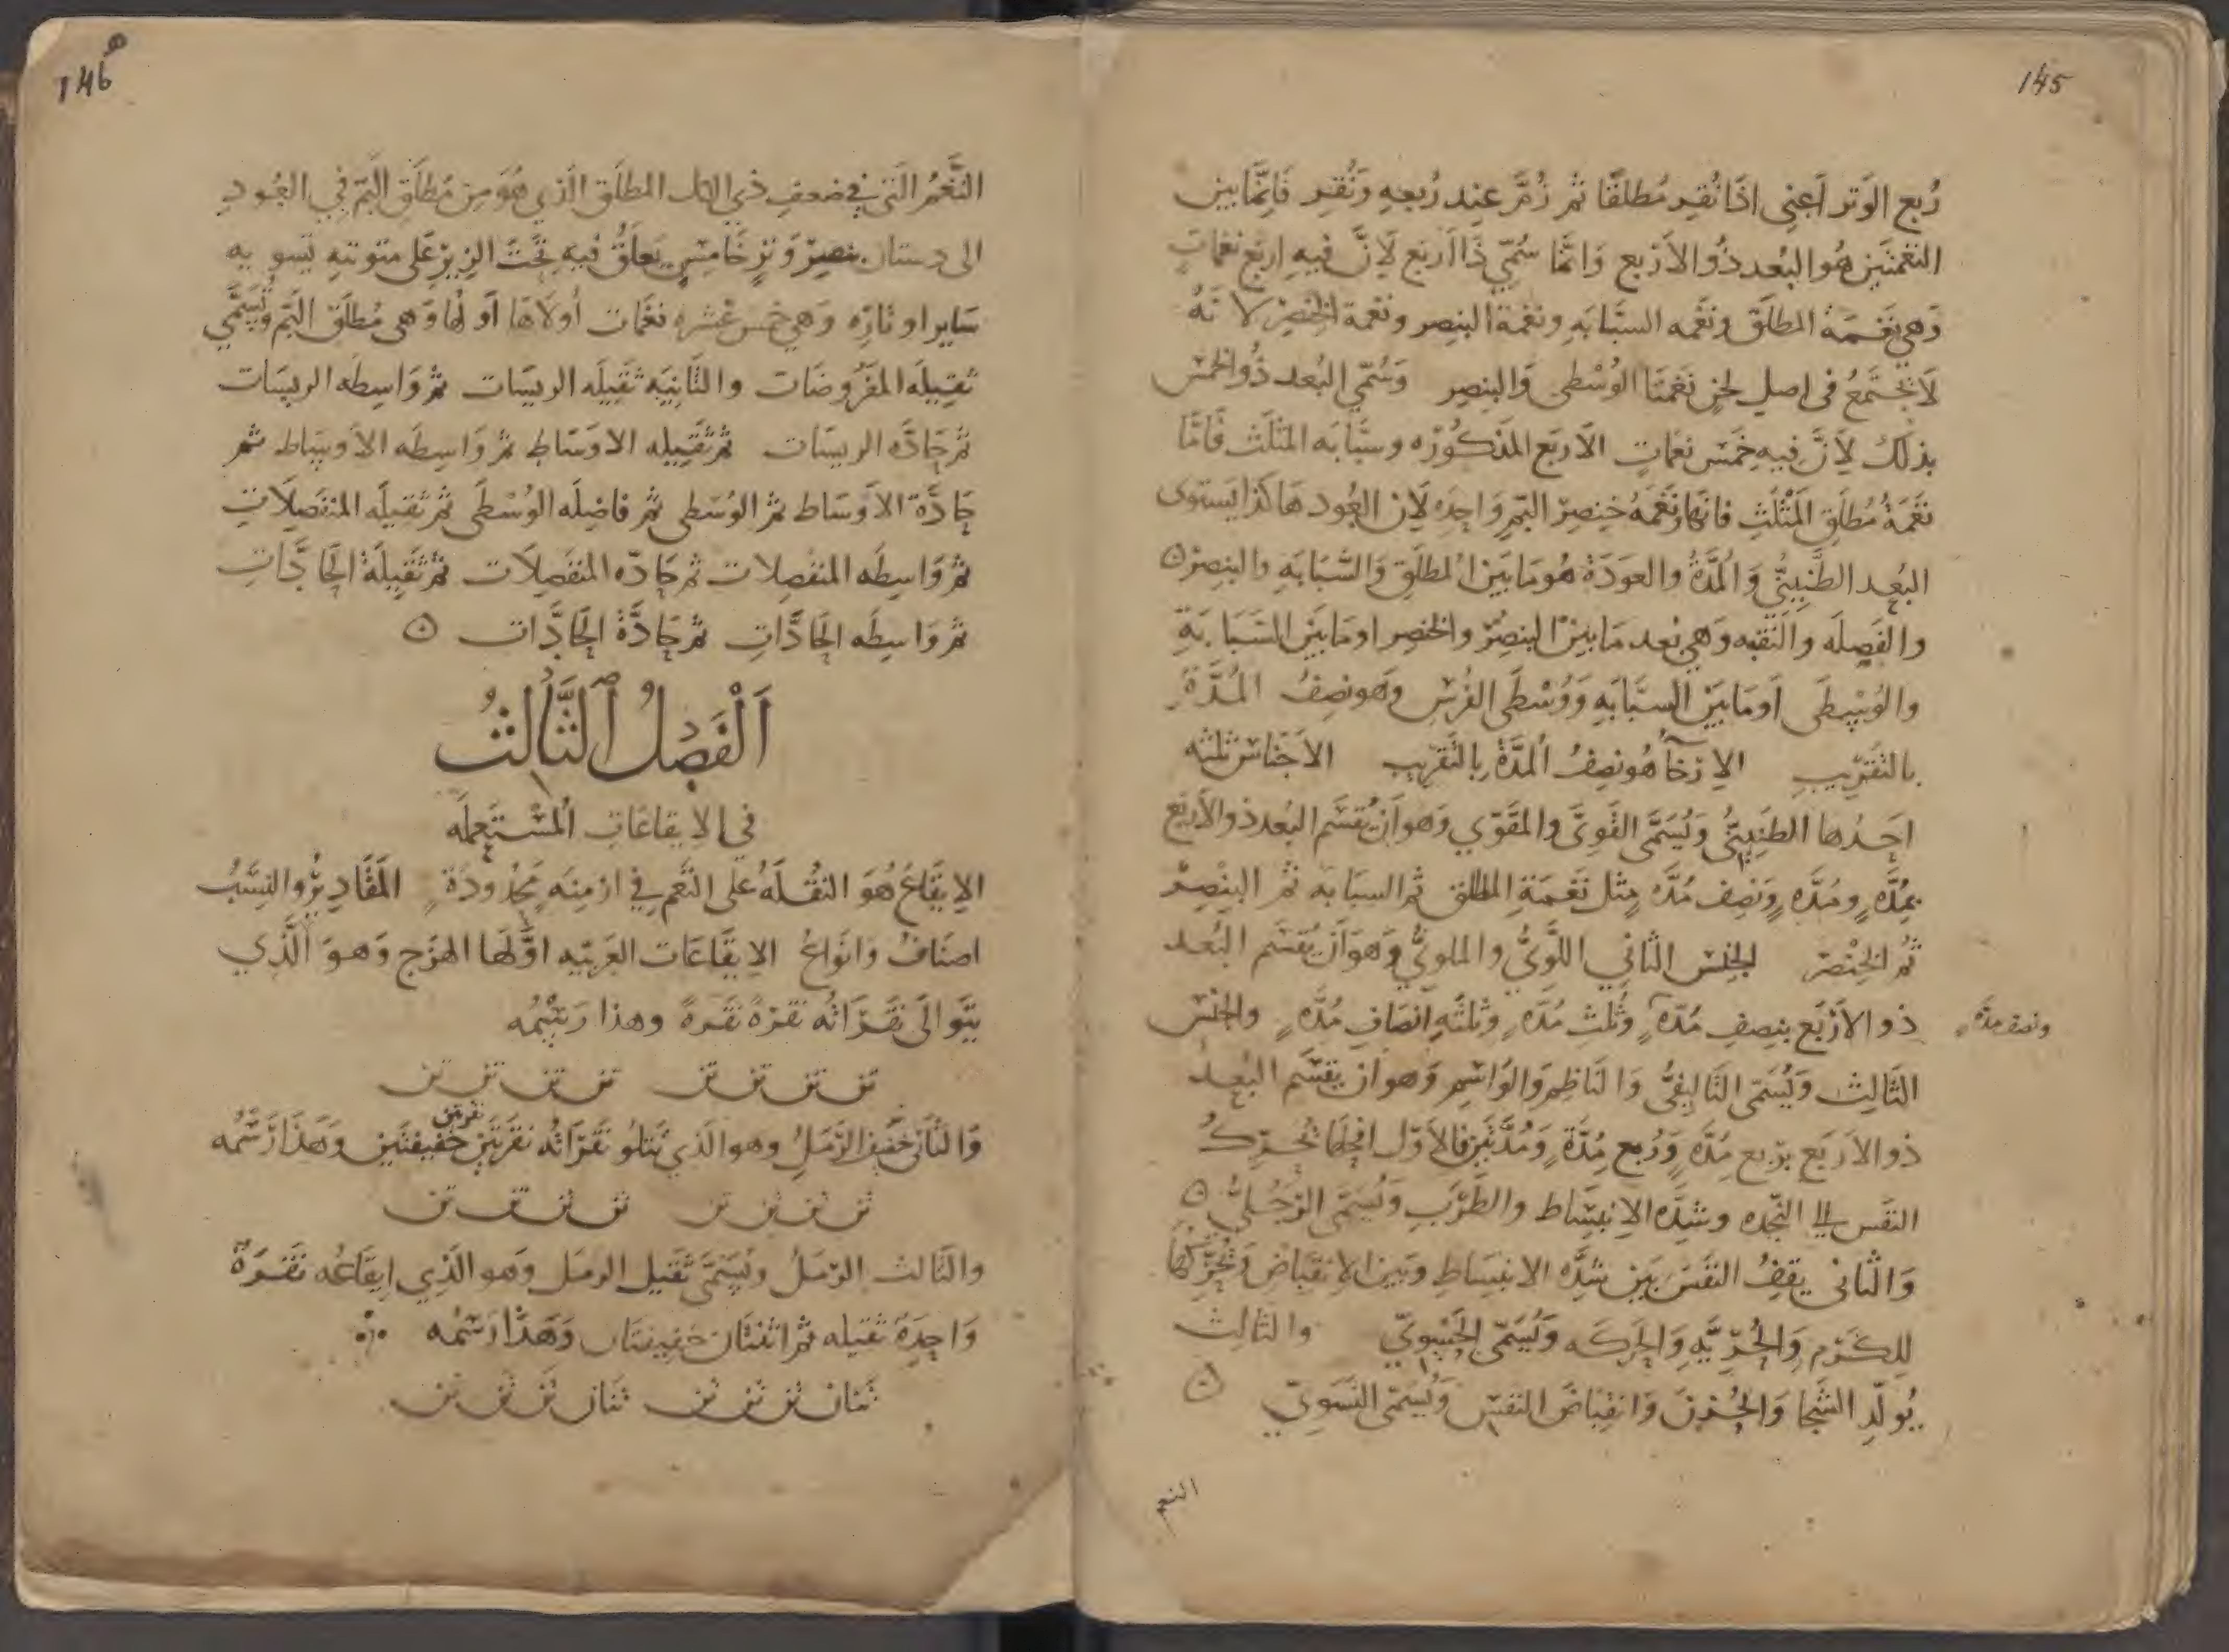 145
رُبع الوَتر اَعني اذَا نُقِر مُطلَقًا ثم زُمَّ عِند رُبعهِ وَنُقِر فَاِنَّمَا بين
النغمتَين هُو البُعد ذُو الأرْبع وَانمَّا سُمِّي ذَا اَرْبع لاَنَّ فيهِ اربَع نغمَاتٍ
وَهي نَغمَة المطلَق ونَغمه السبَّابَهِ ونغمة البنصِر ونغمة الخنصِر لانهُ
لاَ تجتَمعُ فى اصلِ لحنٍ نَغمتَا الوُسْطى وَالبنصِر وَسُمّي البُعد ذُو الخمسْ
بذلكَ لاَنَّ فيهِ خَمسَ نغمَاتٍ الاَربَع المذكُورَه وسبَّابَه المثلَث فَامَّا
نغَمَةُ مُطلَقِ المَثْلَثِ فانهَا ونَغَمهُ خِنصِر البَمِ وَاحِدَه لاَن العُود هَاكذا يَستوى
البُعد الطَّنِينيُّ وَالمُدَّةُ والعودَةُ هُو مَا بَين المطلَقِ وَالسَّبَابَهِ والبنصِر ۞
والفَصِلَه والنَقبه وَهي بُعد مَا بَين البنصِرْ والخنصِر او مَا بَين السَبَابَةِ
والوُسْطَى اَو مَا بَين السبَّابَهِ وَوُسْطَى الفُرسِ وهو نصِفُ المُدَّةِ
بالتقريبِ الاِرْخَآءُ هُو نِصفُ المدَّةِ بالتَقريبِ الاَجنَاس ثلثه
احَدُها الطنِينيُّ وَيُسَمَّى القَوىَّ والمقَوّي وَهو اَنْ يُقسَّم البُعد ذو الأربَع
بمُدَّهٍ ومُدَّه وَنصِف مُدَّه مِثل نَغَمَة المطلق ثم السبَابَه ثم البِنْصِرْ
ثُم الخِنْصَر الجنِس الثاني اللَّوِيُّ والملويُّ وَهو اَن يُقسَم البُعد
ذو الأَرْبَع بنِصفِ مُدّه وَثُلثِ مُدَّه وثلثَهِ انصَافِ مُدَّهٍ والجنْس
ونصف مدَّه
الثَالِث وَيُسَمّى التَالِيفىُّ وَالنَاظِم وَالوَاشِم وَهو اَن يقسّم البُعدُ
ذو الاَربَع بِرُبع مِدَّه وَرُبع مُدَّةٍ وَمُدَّتَين فالاَوّل اجلهَا تُحرِّكُ
النفَس الى النّجده وشدَّه الاِنبسَاط والطَّرَبِ وَيُسَمَّى الرَّجُليُّ ۞
وَالثانى يقفُ النفَس بَين شدَّه الانبسَاطِ وَبَين الاِنقبَاض وَتُحَرِّكُهَا
لِلكَرَم وَالحُرِّيَّهِ وَالحركَه وَيُسَمّى الخَنثويّ والثالث
يُولّدِ الشَّجَا وَالحُزنَ وَانقِبَاضَ النفسْ وَيُسَمّى النسَوِيّ ۞
النغم
146
النَّغَمُ الّتَى في ضعفِ ذي الكل المطلَق الّذي هُوَ مِن مُطلَق البَمّ في العُودِ
الى دستان بنصِرْ وَترٍ خَامسٍ يَعلَّقُ فيهِ تحَتَ الزِيرْ عَلى متوته تَسويه
سَاير اوتارِه وَهي خمس عشره نغَمات أُولاَهَا اَولها وَهى مُطلَق البَم وَتُسَمَّي
ثقيلَه المفرُوضَات والثَّانِيَه ثقيلَه الريسَات ثم وَاسطه الريسَات
ثم حَادَّه الريسَات ثم ثقيله الاوسَاط ثم وَاسِطَه الاَوسَاط ثم
حَادَّة الاَوسَاط ثم الوُسْطى ثم فاضِلَه الوُسْطَى ثم ثقيلَه المنفَصِلاَتِ
ثم وَاسِطَه المنفصِلات ثم حَادّه المنفَصِلاَت ثم ثقيلَةُ الحَادَّاتِ
ثم وَاسِطَه الحَادَّاتِ ثم حَادَّةُ الحَادَّات ۞
اَلْفَصْلُ الثَّالِثُ
في الايقاعَاتِ المُسْتَعمِلَه
الاِيقَاعُ هُوَ النقُلَهُ عَلى النَّغَم فِي ازمنِهَ محَدُودَةِ المقَاديرْ والنِسَّبُ
اصنَافُ وَانوَاعُ الاِيقَاعَات العَربيّه اوَّلهَا الهزَج وَهوَ الَّذي
يَتَوالَى نَقَرَاتُه نقرَةً نقَرةً وهذا رَسْمُه
تن تن تن تن تن تن تن تن
وَالثّانى خَفيف الرَّمَلُ وهو الذي تَتلُو نَقَرَاتُه نَقرَتَين خفيفتَين وَهَذَا رَسْمُه
نقرتين
تن تن تن تن تن تن تن تن
والثَالث الرّمَلُ ويُسَمَّى ثقيل الرمَل وَهو الذَي اِيقَاعُه نَقَرَةٌ
وَاحِدَة ثقيله ثم اثنتَان خفيفتان وَهَذا رَسْمُه
تنان تن تن تن تنان تن تن تن